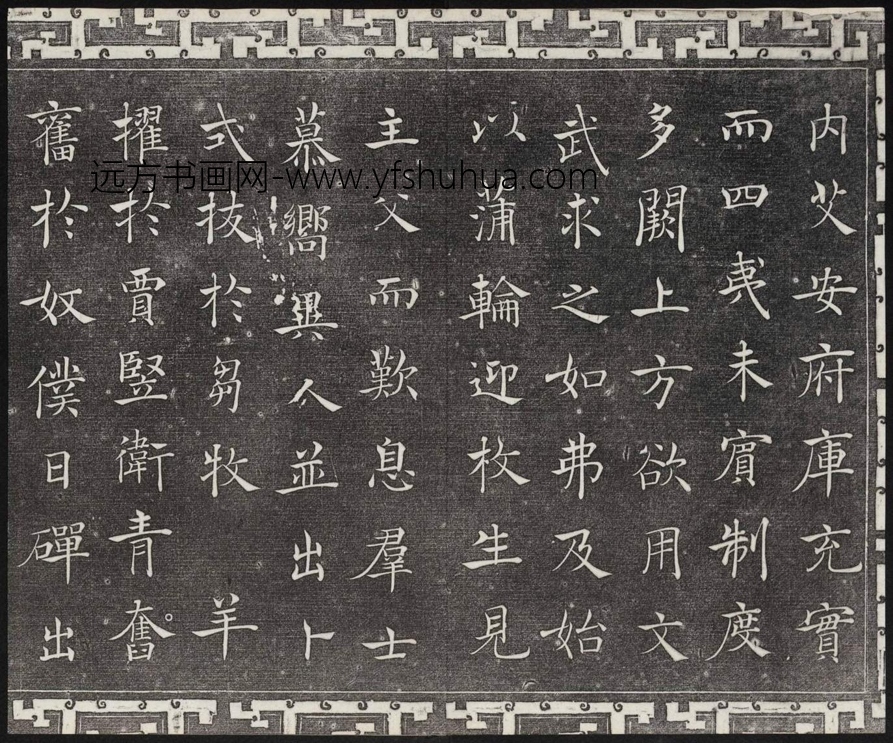 内艾安府庫充實
而四夷未賓制度
多闕上方欲用文
武求之如弗及始
以蒲輪迎枚生見
主父而歎息羣士
慕嚮異人並出卜
式拔於芻牧 羊
擢於賈豎衛青奮
奮於奴僕日磾出
远方书画网-www.yfshuhua.com